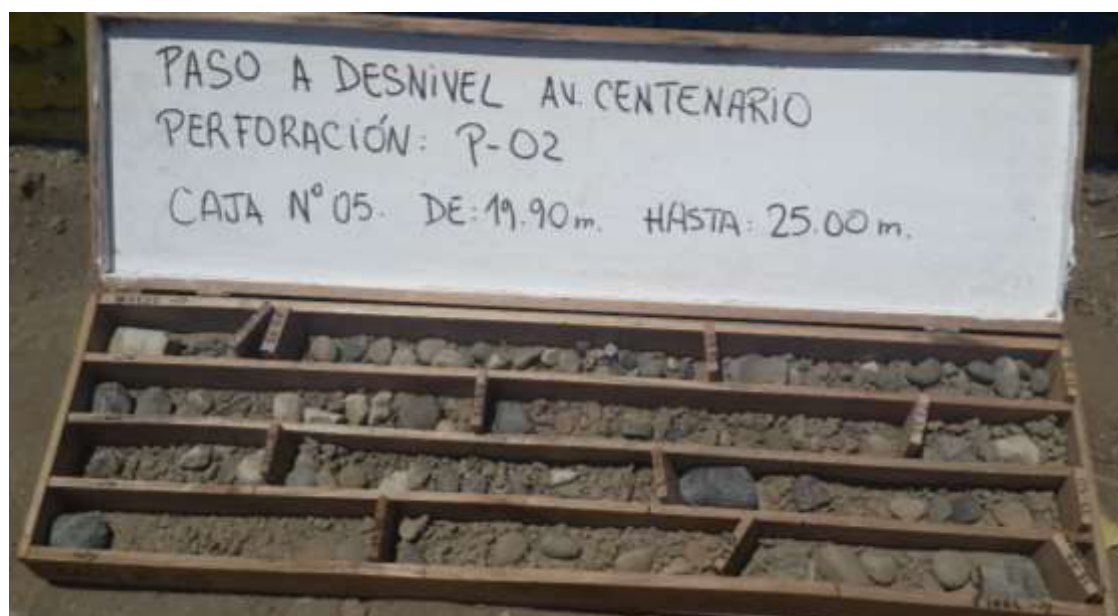 PASO A DESNIVEL AV. CENTENARIO
PERFORACIÓN: P-02
CAJA N° 05. DE: 19.90 m. HASTA: 25.00 m.